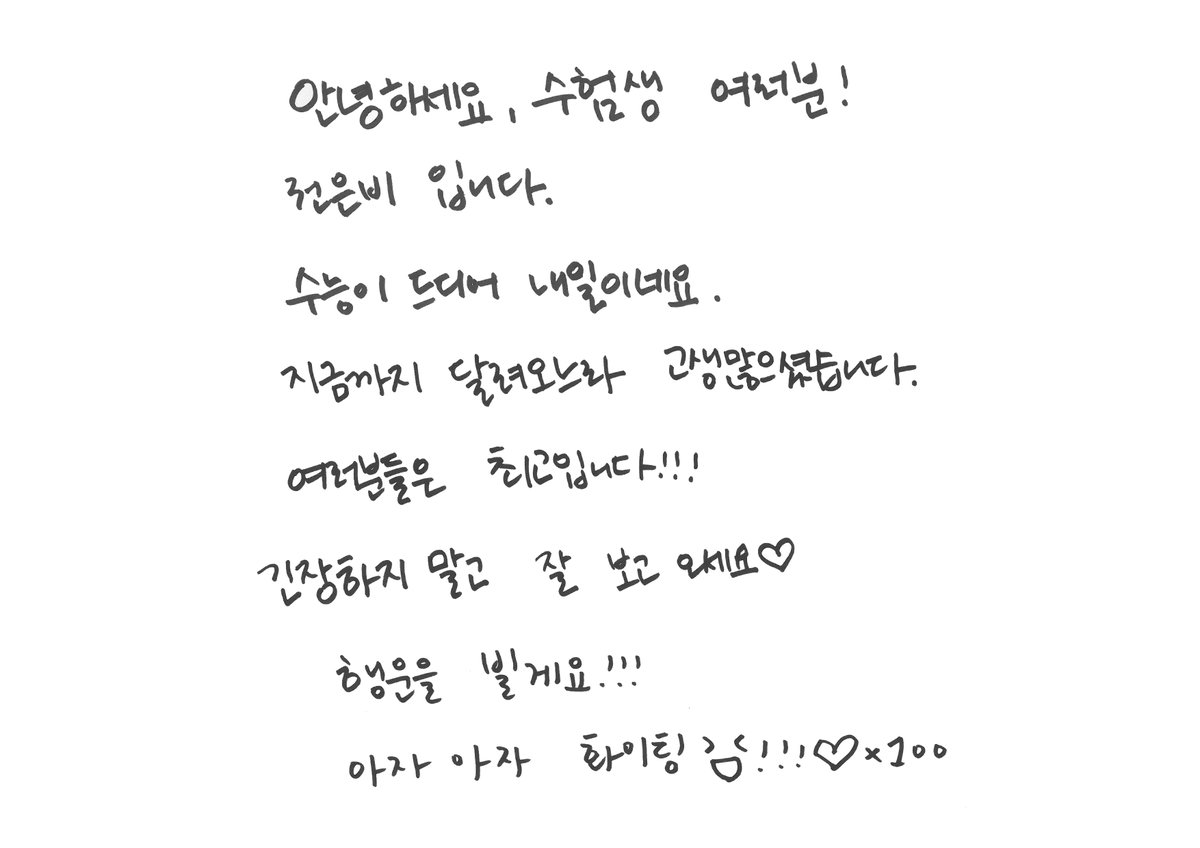 안녕하세요, 수험생 여러분!
전은비 입니다.
수능이 드디어 내일이네요.
지금까지 달려오느라 고생많으셨습니다.
여러분들은 최고입니다!!!
긴장하지 말고 잘 보고 오세요♡
행운을 빌게요!!!
아자 아자 화이팅!!!♡×100